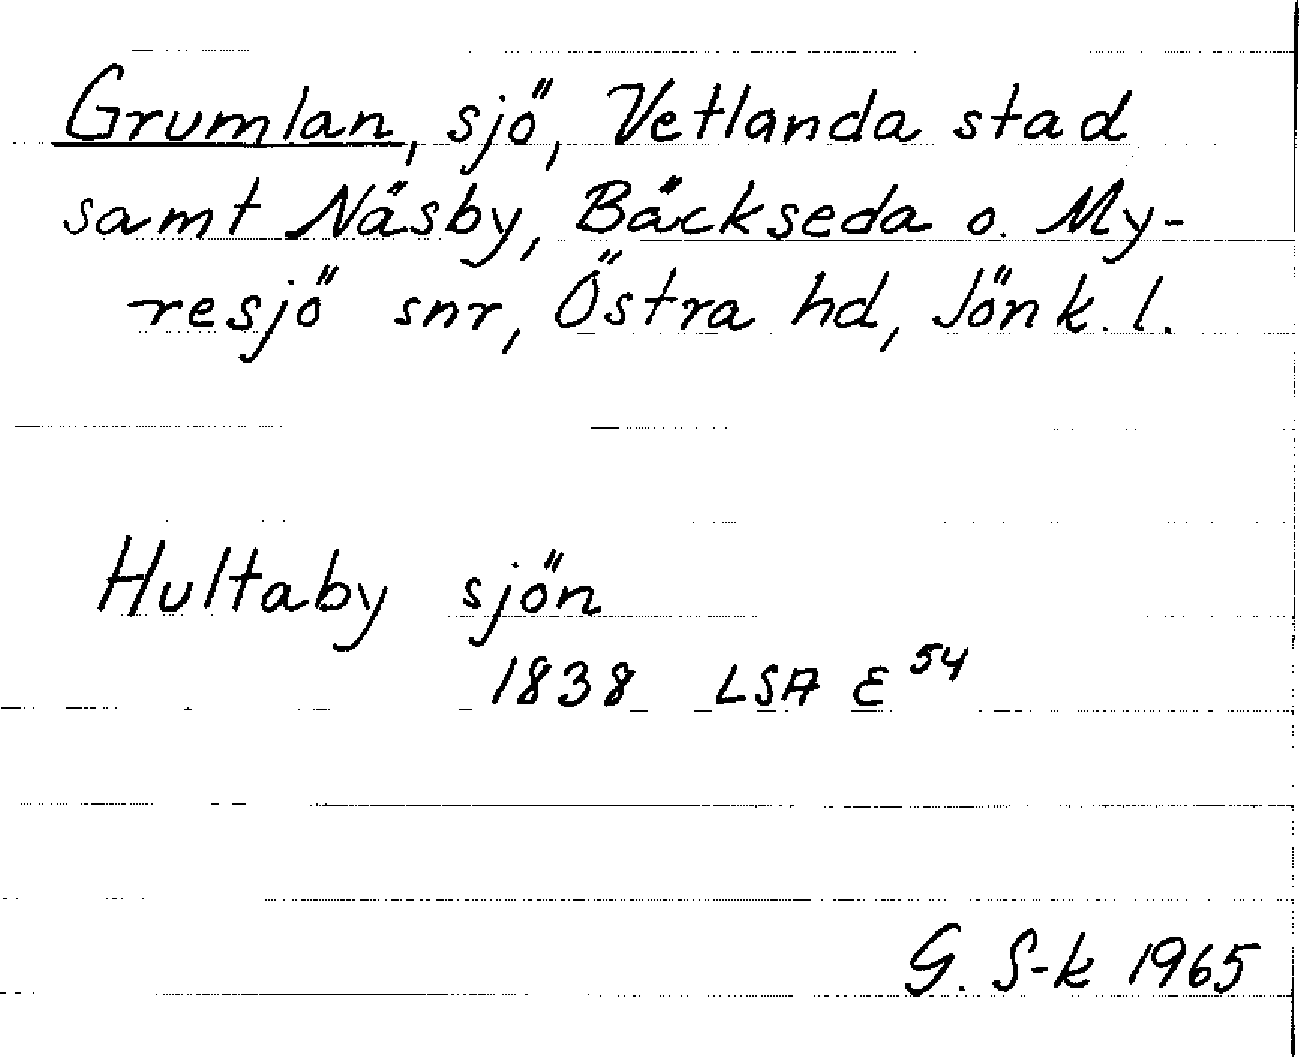 Grumlan, sjö, Vetlanda stad
samt Näsby, Bäckseda o. My-
resjö snr, Östra hd, Jönk. l.
Hultaby sjön
1838 LSA E 54
G. S-k 1965